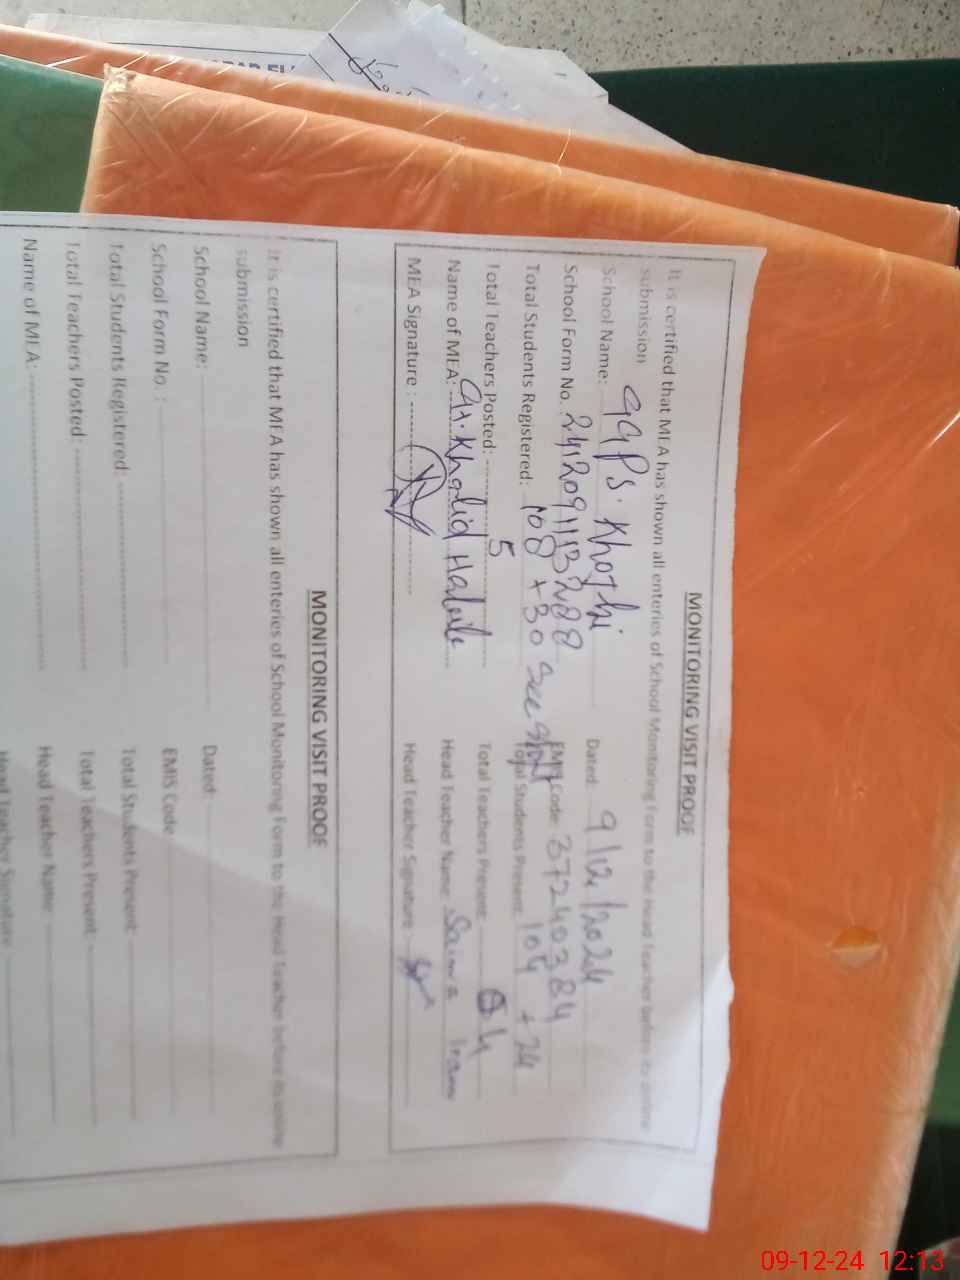 MONITORING VISIT PROOF
It is certified that MEA has shown all enteries of School Monitoring Form to the Head Teacher before its online
submission
School Name: GGPS. Khothi Dated: 9/12/2024
School Form No. 2412091113288 EMIS Code: 37240384
Total Students Registered: 108 + 30 Total Students Present: 104 + 24
Total Teachers Posted: 5 Total Teachers Present: 4
Name of MEA: Khalid Habib Head Teacher Name: Saima Iram
MEA Signature : Head Teacher Signature :
MONITORING VISIT PROOF
It is certified that MEA has shown all enteries of School Monitoring Form to the Head Teacher before its online
submission
School Name: Dated:
School Form No. : EMIS Code
Total Students Registered: Total Students Present:
Total Teachers Posted: Total Teachers Present:
Name of MEA: Head Teacher Name:
Head Teacher Signature
09-12-24 12:13